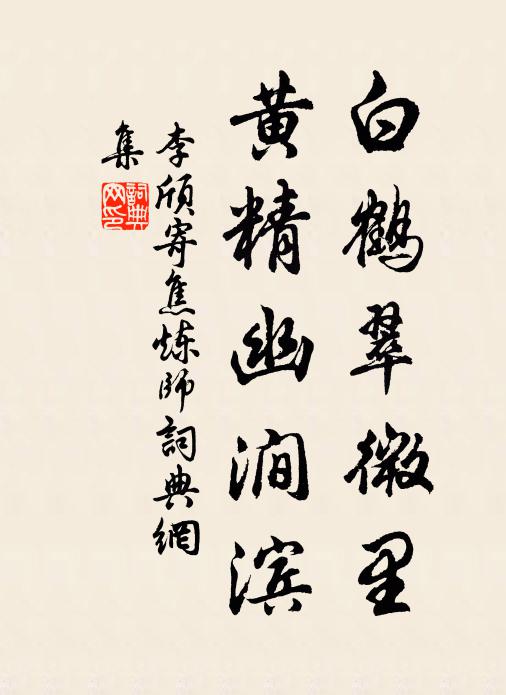 白鹤翠微里
黄精幽涧滨
李颀寄焦炼师詞典網
集
詞典网印